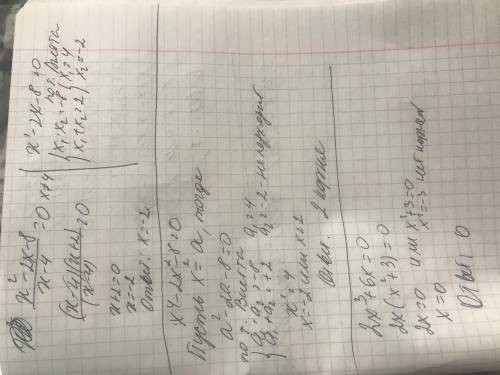 x²-2x-8 / x-4 = 0 x≠4
(x-4)(x+2) / (x-4) = 0
x+2=0
x=-2
Ответ: x=-2
x²-2x-8=0
по т. Виета
{x₁·x₂=-8 {x₁=4
{x₁+x₂=2 {x₂=-2
x⁴-2x²-8=0
Пусть x²=a, тогда
a²-2a-8=0
по т. Виета
{a₁·a₂=-8 a₁=4
{a₁+a₂=+2 a₂=-2 - не подходит
x²=4
x=-2 или x=2
Ответ: 2 корня
2x³+6x=0
2x(x²+3)=0
2x=0 или x²+3=0
x=0 x²=-3 нет корней
Ответ: 0